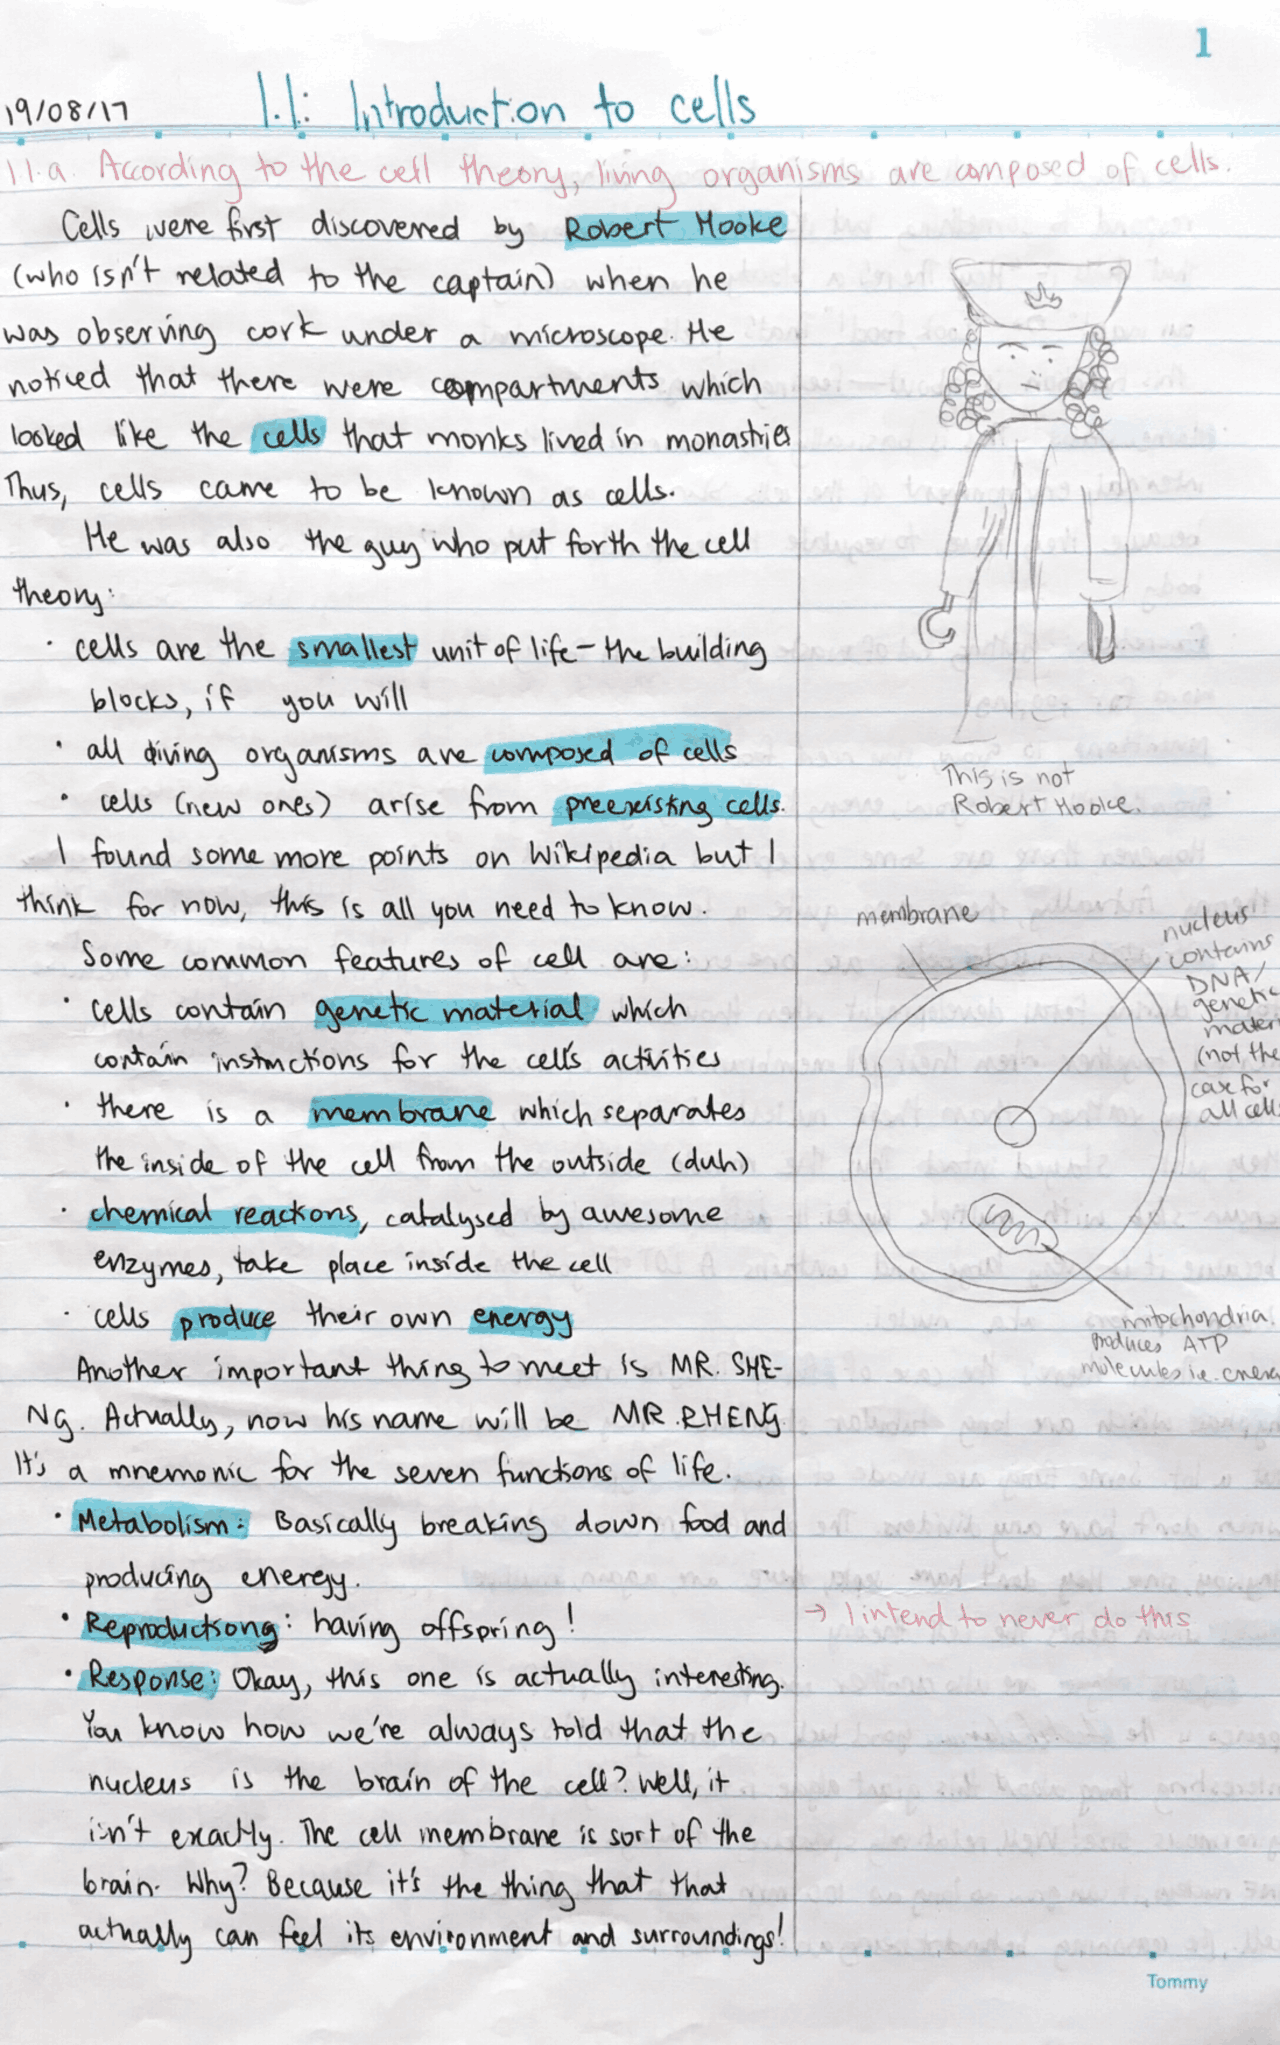 1
19/08/17 1.1: Introduction to cells
1.1.a. According to the cell theory, living organisms are composed of cells.
Cells were first discovered by Robert Hooke
(who isn't related to the captain) when he
was observing cork under a microscope. He
noticed that there were compartments which
looked like the cells that monks lived in monastries
Thus, cells came to be known as cells.
He was also the guy who put forth the cell
theory:
· cells are the smallest unit of life - the building
blocks, if you will
· all living organisms are composed of cells
· cells (new ones) arise from preexisting cells.
I found some more points on Wikipedia but I
think for now, this is all you need to know.
Some common features of cell are:
· cells contain genetic material which
contain instructions for the cell's activities
· there is a membrane which separates
the inside of the cell from the outside (duh)
· chemical reactions, catalysed by awesome
enzymes, take place inside the cell
· cells produce their own energy
Another important thing to meet is MR. SHE-
NG. Actually, now his name will be MR. RHENG.
It's a mnemonic for the seven functions of life.
· Metabolism: Basically breaking down food and
producing energy.
· Reproductiong: having offspring!
· Response: Okay, this one is actually interesting.
You know how we're always told that the
nucleus is the brain of the cell? Well, it
isn't exactly. The cell membrane is sort of the
brain. Why? Because it's the thing that that
actually can feel its environment and surroundings!
This is not
Robert Hooke.
membrane
nucleus
contains
DNA/
genetic
materi
(not the
case for
all cells
mitochondria.
produces ATP
molecules i.e. energ
→ I intend to never do this
Tommy